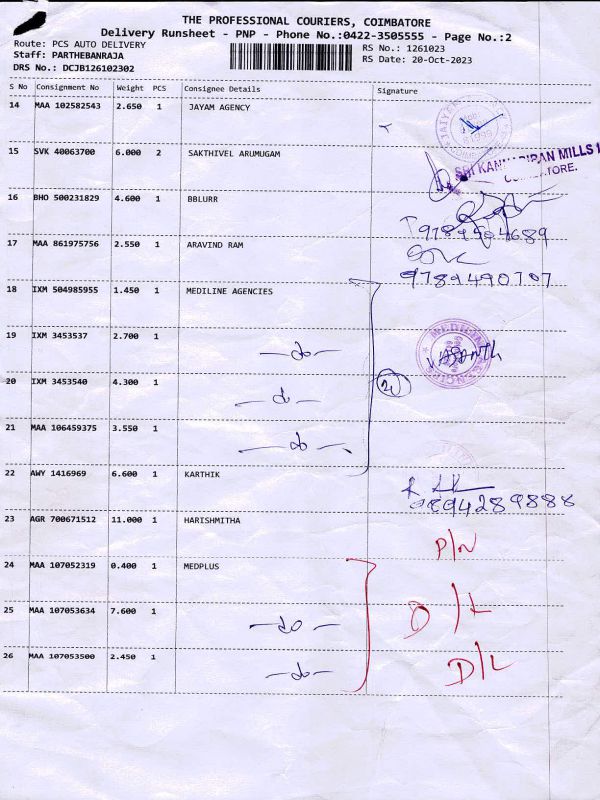 THE PROFESSIONAL COURIERS, COIMBATORE
Delivery Runsheet - PNP - Phone No.:0422-3505555 - Page No.:2
Route: PCS AUTO DELIVERY
RS No.: 1261023
Staff: PARTHEBANRAJA
RS Date: 20-Oct-2023
DRS No.: DCJB126102302
S No Consignment No Weight PCS Consignee Details Signature
14 MAA 102582543 2.650 1 JAYAM AGENCY
15 SVK 40063700 6.000 2 SAKTHIVEL ARUMUGAM
16 BHO 500231829 4.600 1 BBLURR
17 MAA 861975756 2.550 1 ARAVIND RAM
9789490707
18 IXM 504985955 1.450 1 MEDILINE AGENCIES
19 IXM 3453537 2.700 1 -do-
VASANTH
20 IXM 3453540 4.300 1 -do-
21 MAA 106459375 3.550 1 -do-
22 AWY 1416969 6.600 1 KARTHIK
9894289888
23 AGR 700671512 11.000 1 HARISHMITHA
P/N
24 MAA 107052319 0.400 1 MEDPLUS
25 MAA 107053634 7.600 1 -do-
D/L
26 MAA 107053500 2.450 1 -do-
D/L